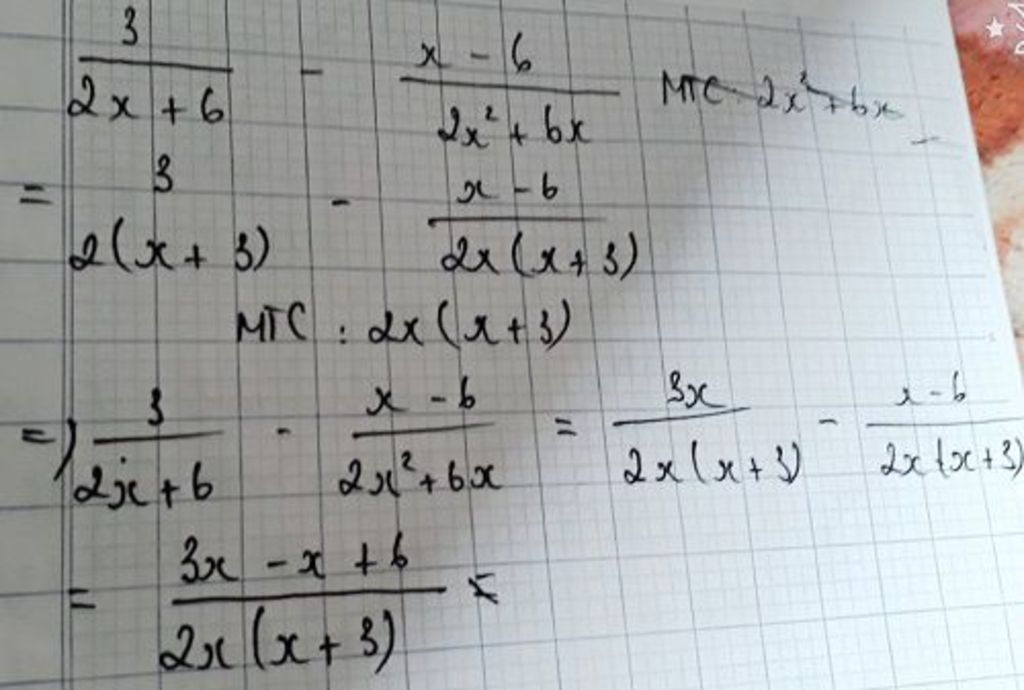 3/(2x + 6) - (x - 6)/(2x² + 6x) MTC: 2x² + 6x
= 3/(2(x + 3)) - (x - 6)/(2x(x + 3))
MTC : 2x(x + 3)
=) 3/(2x + 6) - (x - 6)/(2x² + 6x) = 3x/(2x(x + 3)) - (x - 6)/(2x(x + 3))
= (3x - x + 6)/(2x(x + 3)) =